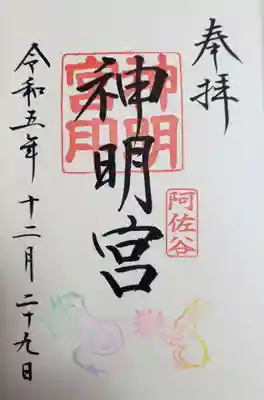 奉拝
阿佐谷
神明宮
神明宮印
令和五年十二月二十九日